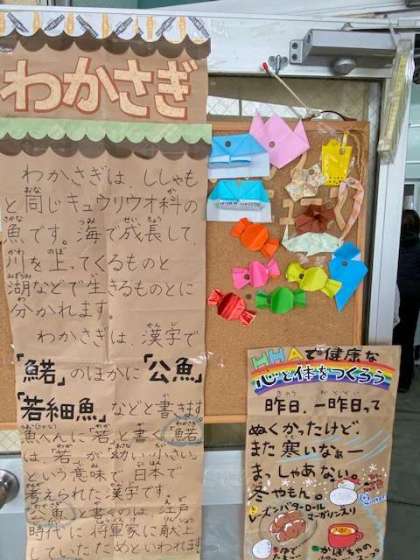 わかさぎ
わかさぎは、ししゃも
と同じキュウリウオ科の
魚です。海で成長して、
川を上ってくるものと、
湖などで生きるものとに
分かれます。
わかさぎは、漢字で
「鰙」のほかに「公魚」
「若細魚」などと書きます
魚へんに「若」と書く「鰙」
は、「若」が「幼い・小さい」
という意味で、日本で
考えられた漢字です。
「公魚」と書くのは、江戸
時代に将軍家に献上
していたためといわれます
で健康な
心と体をつくろう
昨日、一昨日って
ぬくかったけど、
また寒いなぁー
ま、しゃあない。
冬やもん。
インバターロール
マーガリン入り
かぼちゃの